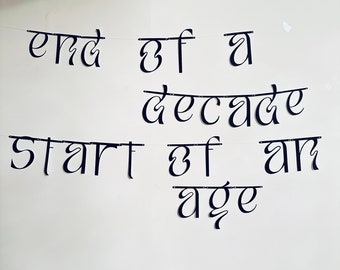 end of a
decade
start of an
age